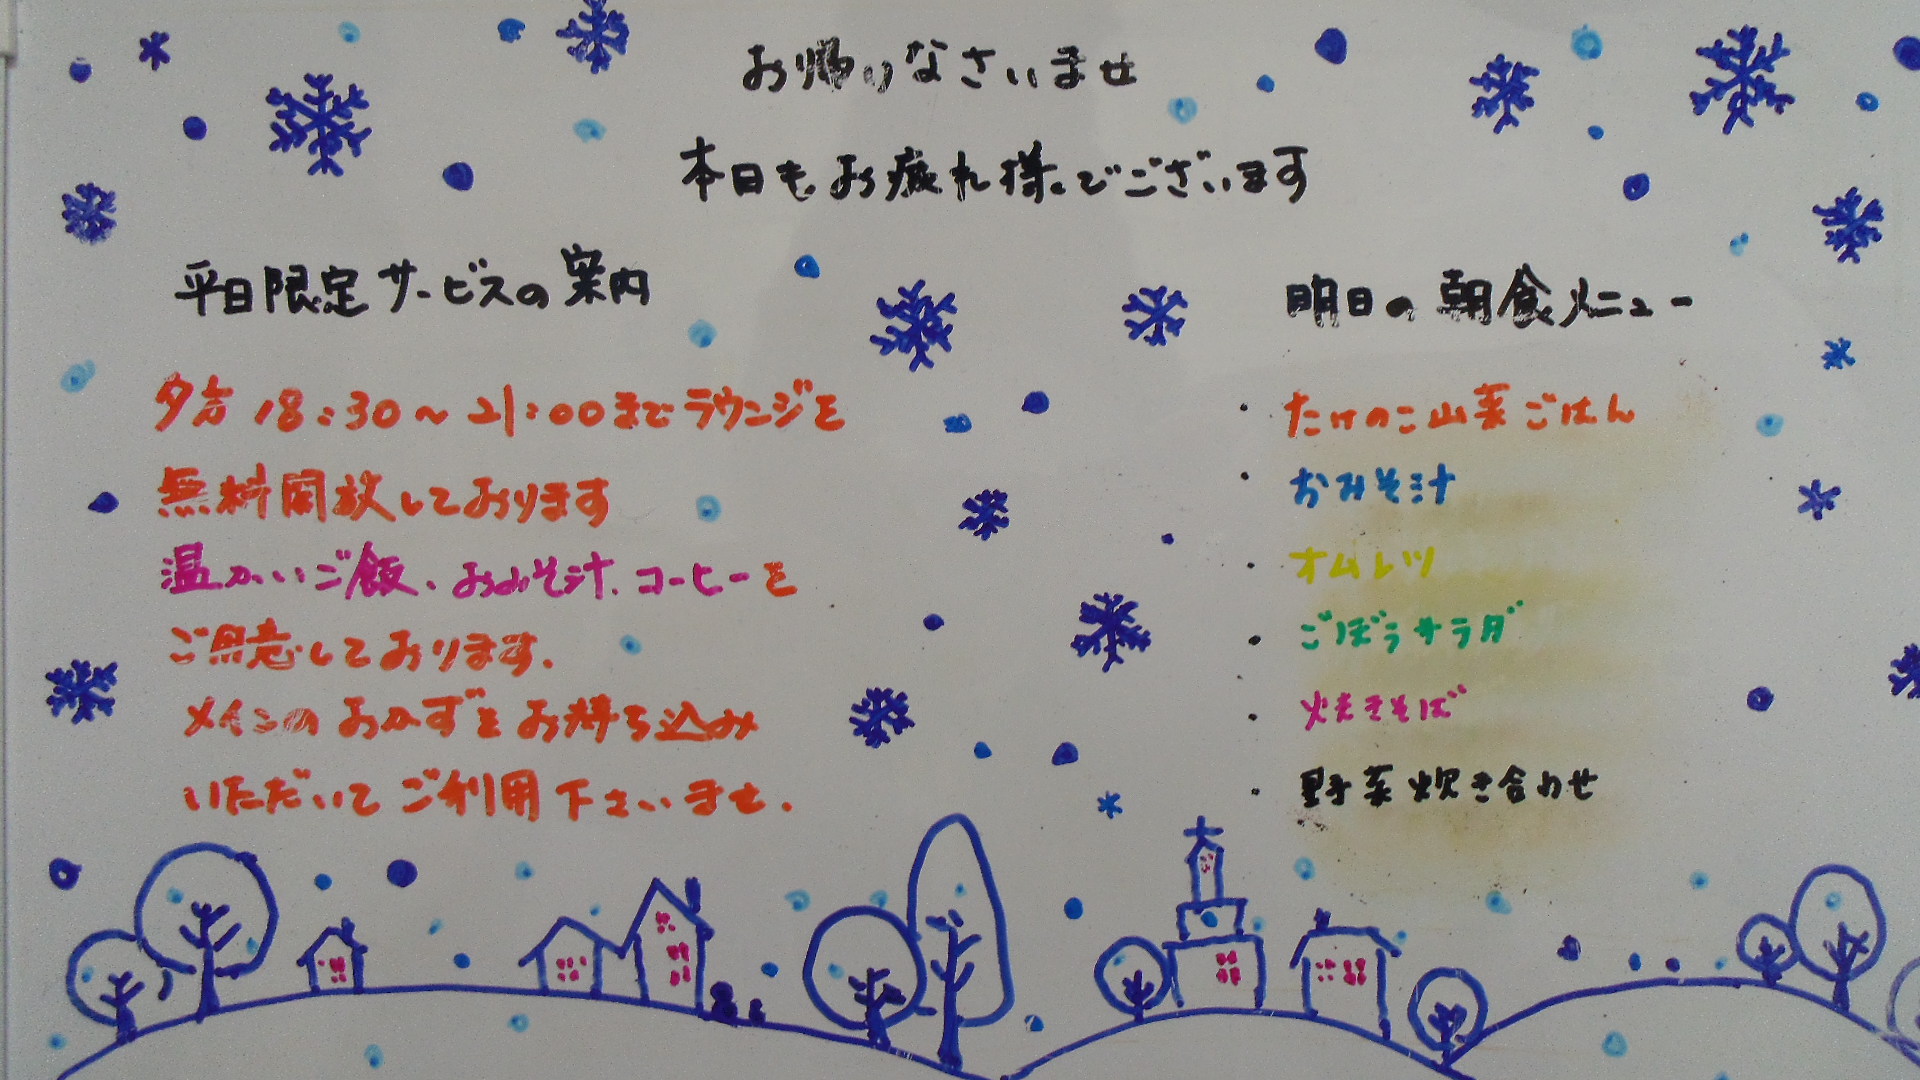 お帰りなさいませ
本日もお疲れ様でございます
平日限定サービスの案内
夕方 18:30～21:00までラウンジを
無料開放しております
温かいご飯、おみそ汁、コーヒーを
ご用意しております。
メインのおかずをお持ち込み
いただいてご利用下さいませ。
明日の朝食メニュー
・たけのこ山菜ごはん
・おみそ汁
・オムレツ
・ごぼうサラダ
・焼きそば
・野菜炊き合わせ